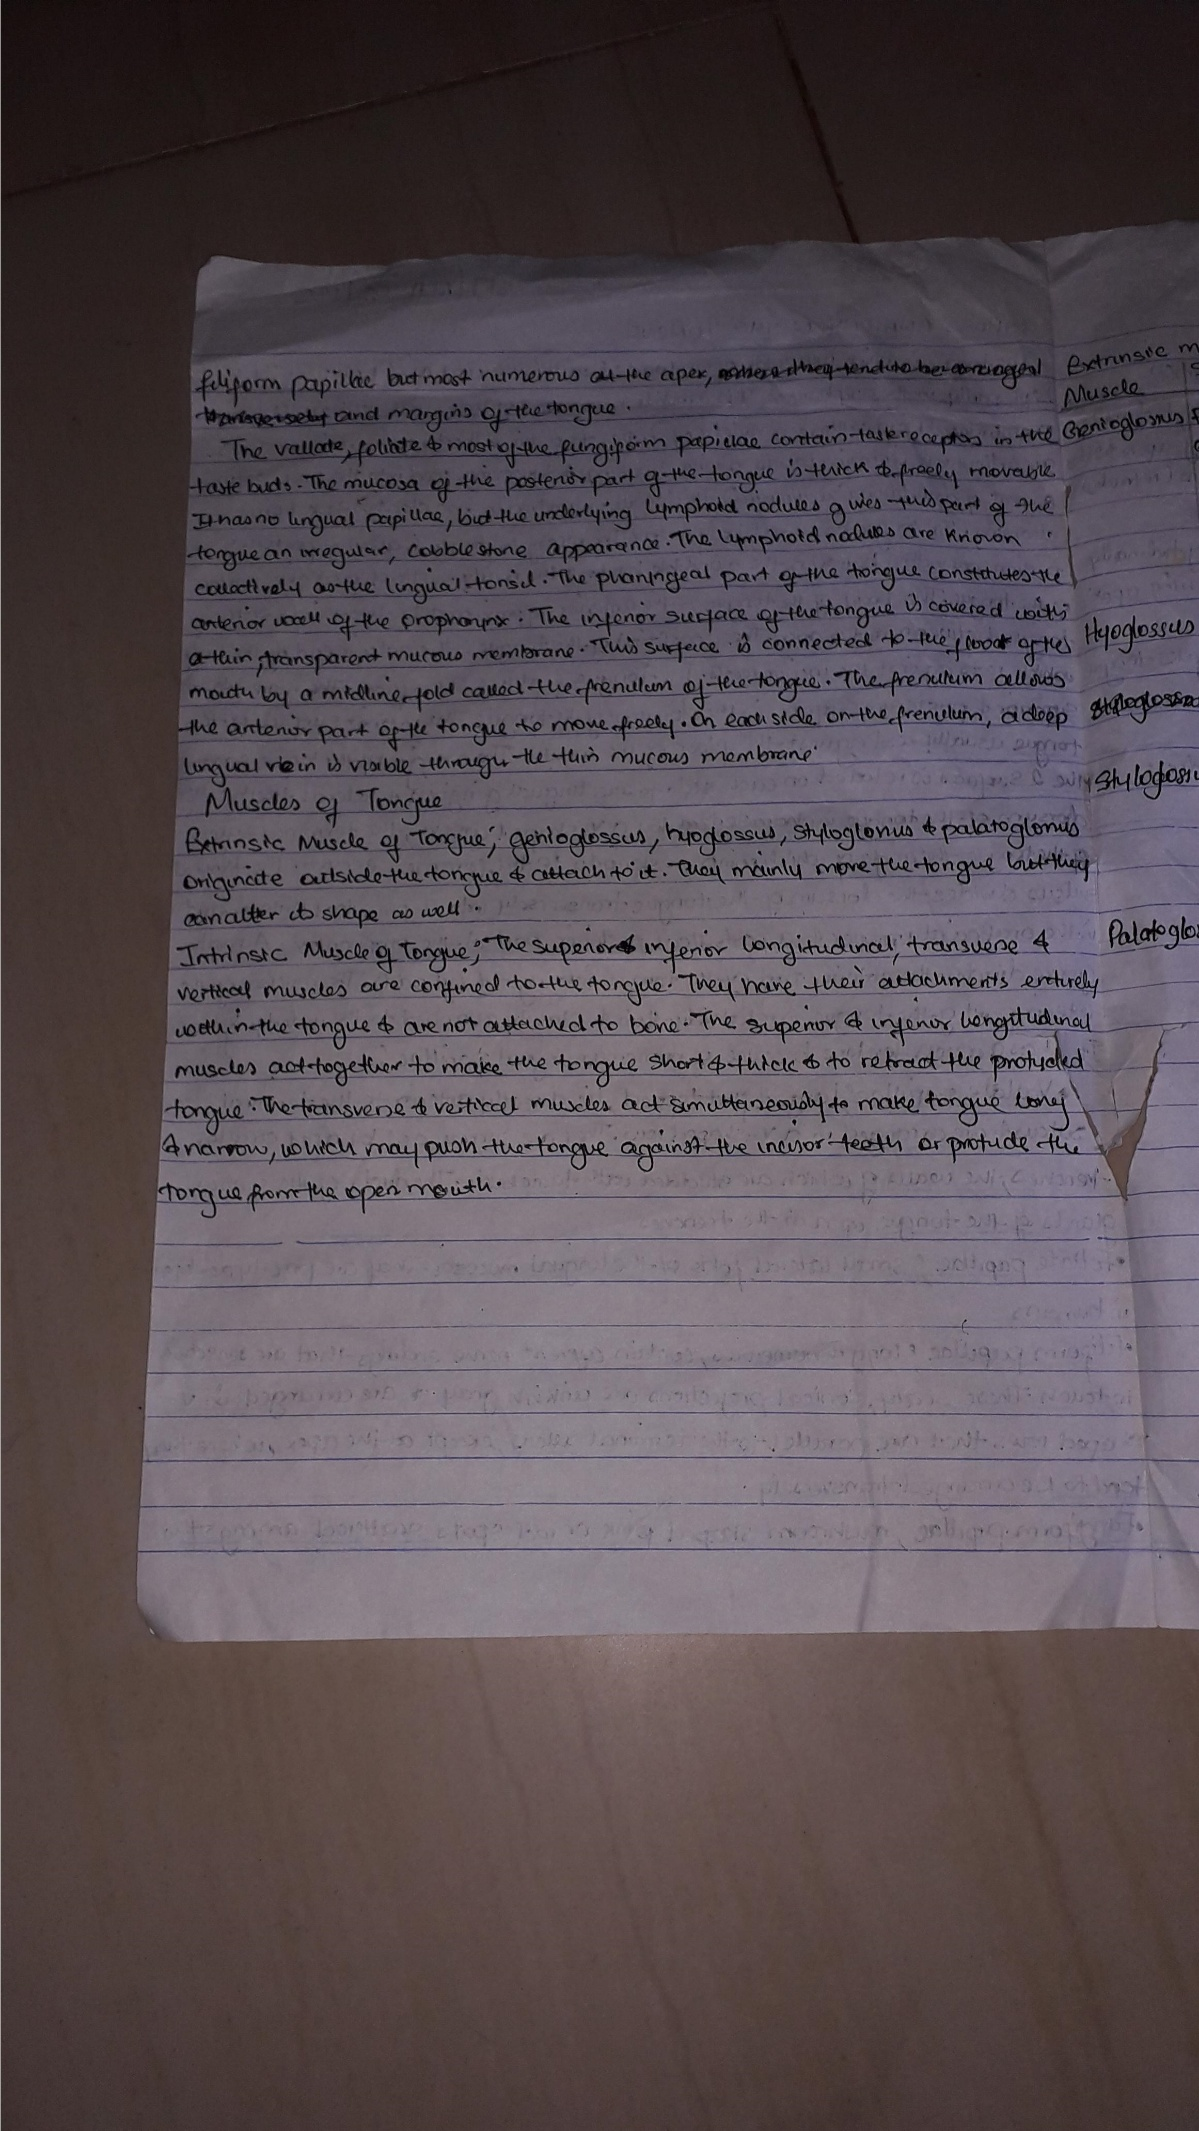 filiform papillae but most numerous at the apex, where they tend to be arranged
transversely and margins of the tongue.
The vallate, foliate & most of the fungiform papillae contain taste receptors in the
taste buds. The mucosa of the posterior part of the tongue is thick & freely movable
It has no lingual papillae, but the underlying lymphoid nodules gives this part of the
tongue an irregular, cobblestone appearance. The lymphoid nodules are known
collectively as the lingual tonsil. The pharyngeal part of the tongue constitutes the
anterior wall of the oropharynx. The inferior surface of the tongue is covered with
a thin, transparent mucous membrane. This surface is connected to the floor of the
mouth by a midline fold called the frenulum of the tongue. The frenulum allows
the anterior part of the tongue to move freely. On each side on the frenulum, a deep
lingual vein is visible through the thin mucous membrane.
Muscles of Tongue
Extrinsic Muscle of Tongue; genioglossus, hyoglossus, styloglossus & palatoglossus
originate outside the tongue & attach to it. They mainly move the tongue but they
can alter its shape as well.
Intrinsic Muscle of Tongue; The superior & inferior longitudinal, transverse &
vertical muscles are confined to the tongue. They have their attachments entirely
within the tongue & are not attached to bone. The superior & inferior longitudinal
muscles act together to make the tongue short & thick & to retract the protruded
tongue. The transverse & vertical muscles act simultaneously to make tongue long
& narrow, which may push the tongue against the incisor teeth or protude the
tongue from the open mouth.
Extrinsic m
Muscle
Genioglossus
Hyoglossus
Styloglossu
Palatoglos